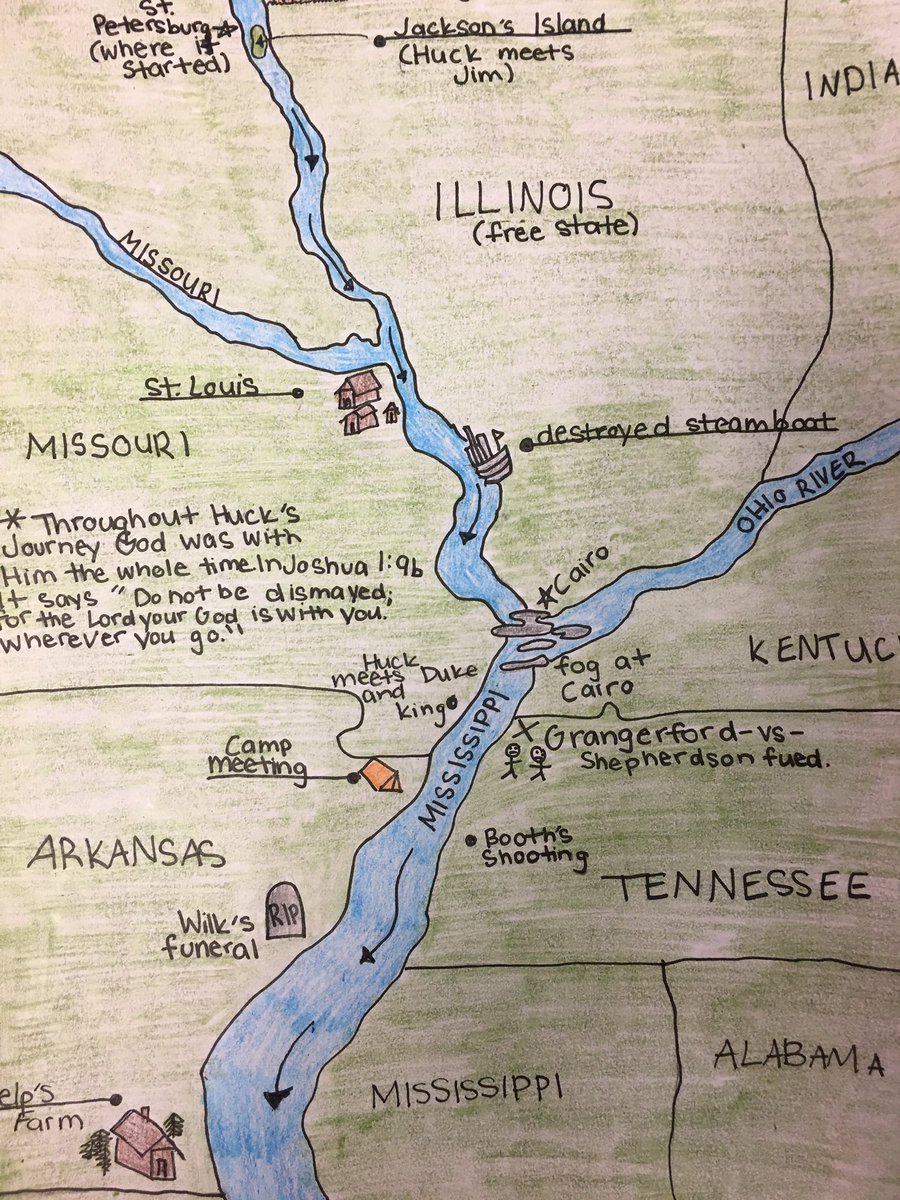 St.
Petersburg
(where it
started)
Jackson's Island
(Huck meets
Jim)
INDIA
ILLINOIS
(free state)
MISSOURI
St. Louis
destroyed steamboat
MISSOURI
OHIO RIVER
* Throughout Huck's
Journey God was with
Him the whole time. In Joshua 1:9b
It says "Do not be dismayed;
for the Lord your God is with you.
wherever you go."
Cairo
KENTUC
fog at
Cairo
Huck
meets Duke
and
king
MISSISSIPPI
Grangerford-vs-
Shepherdson fued.
Camp
meeting
Booth's
Shooting
ARKANSAS
TENNESSEE
Wilk's
funeral
RIP
ALABAMA
MISSISSIPPI
elp's
Farm